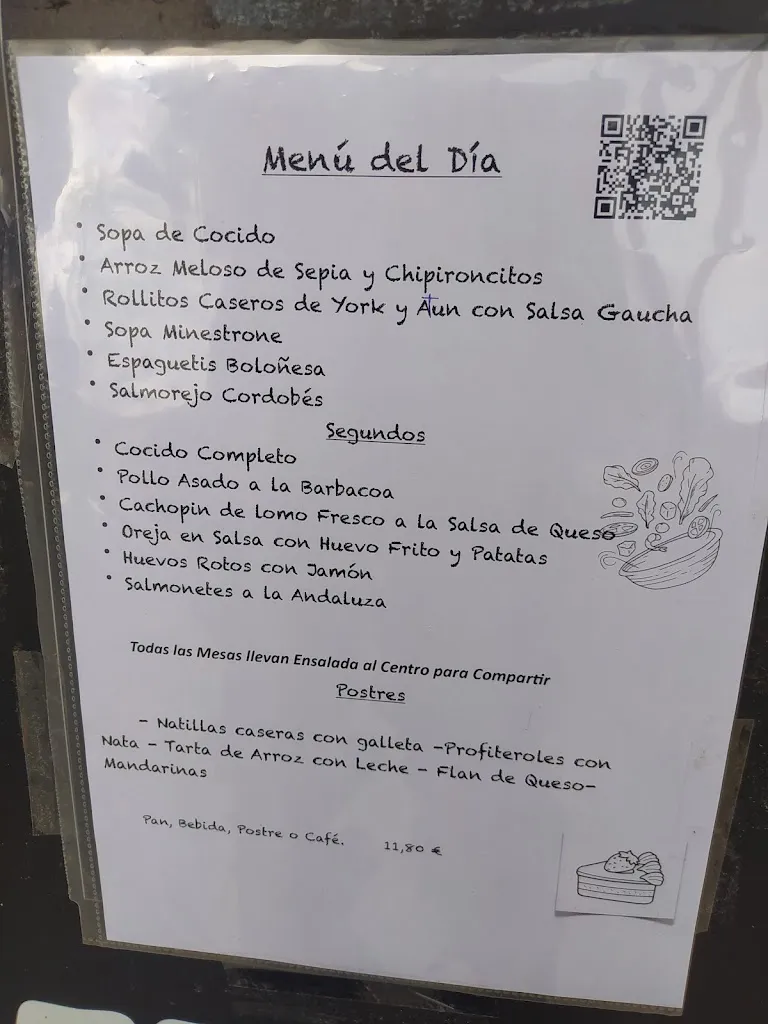 Menú del Día
• Sopa de Cocido
• Arroz Meloso de Sepia y Chipironcitos
• Rollitos Caseros de York y Atun con Salsa Gaucha
• Sopa Minestrone
• Espaguetis Boloñesa
• Salmorejo Cordobés
Segundos
• Cocido Completo
• Pollo Asado a la Barbacoa
• Cachopin de lomo Fresco a la Salsa de Queso
• Oreja en Salsa con Huevo Frito y Patatas
• Huevos Rotos con Jamón
• Salmonetes a la Andaluza
Todas las Mesas llevan Ensalada al Centro para Compartir
Postres
- Natillas caseras con galleta -Profiteroles con
Nata - Tarta de Arroz con Leche - Flan de Queso-
Mandarinas
Pan, Bebida, Postre o Café. 11,80 €